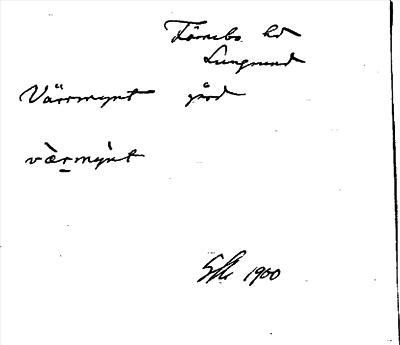 Färnebo hd
Lungsund
Värrmynt gård
væ̀r̠mỳnt
1900